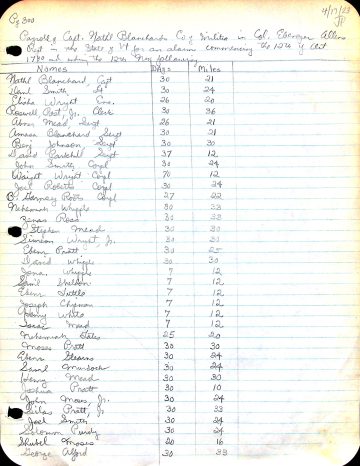 Pg 300
4/17/23
Payroll of Capt. Nathl Blanchards Co of Militia in Col. Ebenezer Allens
Regt in the State of Vt for an alarm commencing the 12th of Oct
1780 and
Names Days Miles
Nathl Blanchard, Capt 30 21
Danl Smith, Lt 30 24
Elisha Wright Ens. 26 20
Roswell Post, Jr. Clerk 30 36
Abner Mead, Sergt 26 21
Amasa Blanchard Sergt 30 21
Benj Johnson, Sergt 30 30
David Parkhill Sergt 37 12
John Smith Corpl 30 24
Wright Corpl 70 12
Joel Roberts Corpl 30 24
B. Gurney Root Corpl 27 22
Nehemiah Wright 30 33
Zenas Root 30 33
Stephen Mead 30 30
Simeon Wright, Jr. 30 30
Eben Pratt 30 25
David Wright 30 30
Jona. Wright 7 12
Saml Sheldon 7 12
Eben Tuttle 7 12
Joseph Chipman 7 12
Henry White 7 12
Isaac Mead 7 12
Nehemiah Gates 25 20
Moses Pratt 30 30
Eben Stearns 30 24
Saml Murdock 30 24
Henry Mead 30 30
Joshua Pratt 30 10
John Moses, Jr. 30 24
Silas Pratt, Jr 30 33
Joel Smith 30 24
Solomon Purdy 30 24
Shubel Moses 20 16
George Alford 30 33